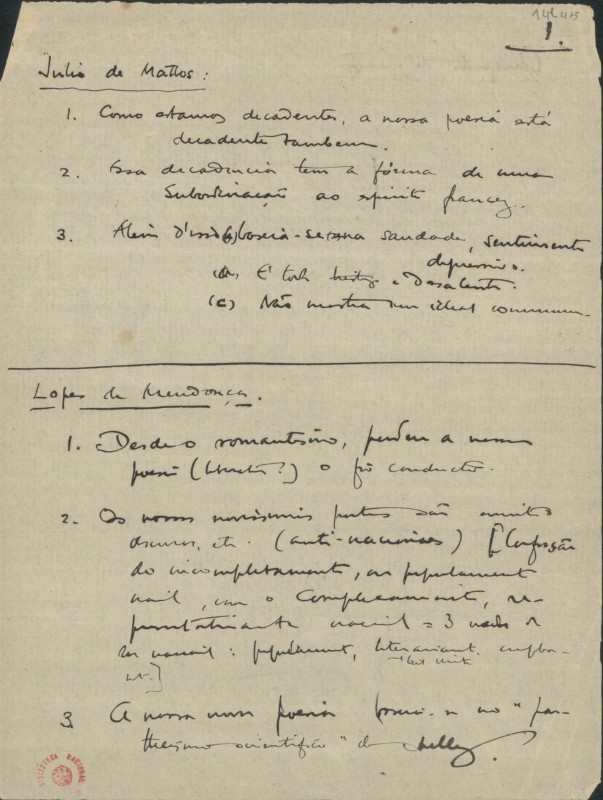 1.
Julio de Mattos:
1. Como estamos decadentes, a nossa poesia está
decadente tambem.
2. Essa decadencia tem a fórma de uma
subordinação ao espirito francez.
3. Alem d'isso (a) baseia-se na saudade, sentimento
depressivo.
É toda e desalento.
(c) Não mostra um ideal commum.
Lopes de Mendonça.
1. Desde o romantismo, perdeu a nossa
poesia (litterat.?) o fio conductor.
2. Os nossos novissimos poetas são muito
obscuros, etc. (anti-nacionaes) [Confusão
do incompletamente, ou popularmente
nacional, com o completamente, re-
presentativamente nacional = 3 modos de
ser nacional: popularment,
3 A nossa nova poesia basea-se no "pan-
theismo scientifico" de Shelley.
BIBLIOTECA NACIONAL